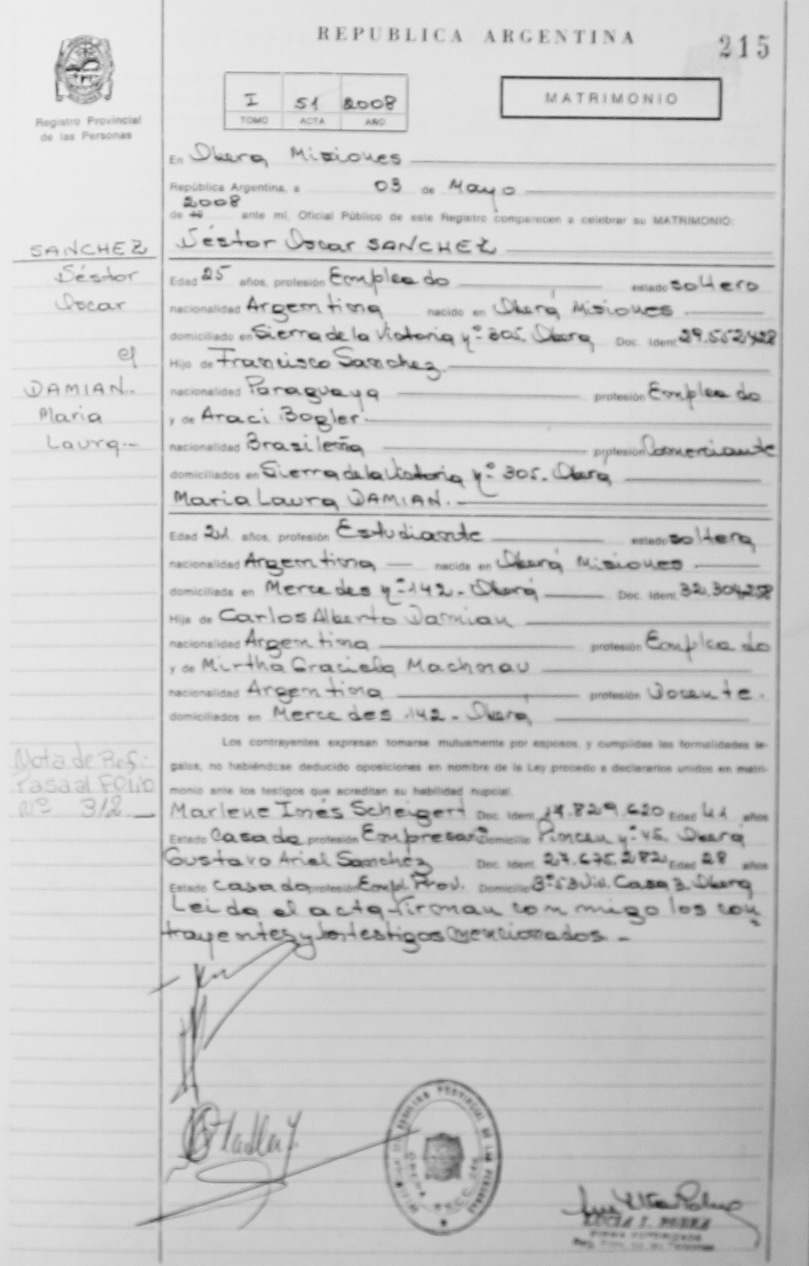 REPUBLICA ARGENTINA
215
Registro Provincial
de las Personas
I 51 2008
TOMO ACTA AÑO
MATRIMONIO
En Oberá Misiones
República Argentina, a 03 de Mayo
2008
de 19 ante mí, Oficial Público de este Registro comparecen a celebrar su MATRIMONIO:
SANCHEZ
Néstor
Oscar
c/
DAMIAN.
Maria
Laura.-
Néstor Oscar SANCHEZ
Edad 25 años, profesión Empleado estado soltero
nacionalidad Argentina nacido en Oberá Misiones
domiciliado en Sierra de la Victoria nº 305. Oberá Doc. Ident. 29.552.428
Hijo de Francisco Sanchez.
nacionalidad Paraguaya profesión Empleado
y de Araci Bogler.
nacionalidad Brasileña profesión Comerciante
domiciliados en Sierra de la Victoria nº 305. Oberá
Maria Laura DAMIAN.
Edad 21 años, profesión Estudiante estado soltera
nacionalidad Argentina nacida en Oberá Misiones
domiciliada en Mercedes nº 142 - Oberá Doc. Ident. 32.304.258
Hija de Carlos Alberto Damian
nacionalidad Argentina profesión Empleado
y de Mirtha Graciela Machnau
nacionalidad Argentina profesión Docente.
domiciliados en Mercedes 142 - Oberá
Los contrayentes expresan tomarse mutuamente por esposos, y cumplidas las formalidades le-
gales, no habiéndose deducido oposiciones en nombre de la Ley procedo a declararlos unidos en matri-
monio ante los testigos que acreditan su habilidad nupcial.
Nota de Ref:
Pasa al FOLIO
Nº 312
Marlene Inés Scheigert Doc. Ident. Edad 41 años
Estado Casada profesión Empresaria Domicilio nº 45. Oberá
Gustavo Ariel Sanchez Doc. Ident. 27.675.282 Edad 28 años
Estado Casado profesión Empl. Prov. Domicilio Casa 3. Oberá
Leida el acta firman conmigo los con
trayentes y los testigos mencionados.-